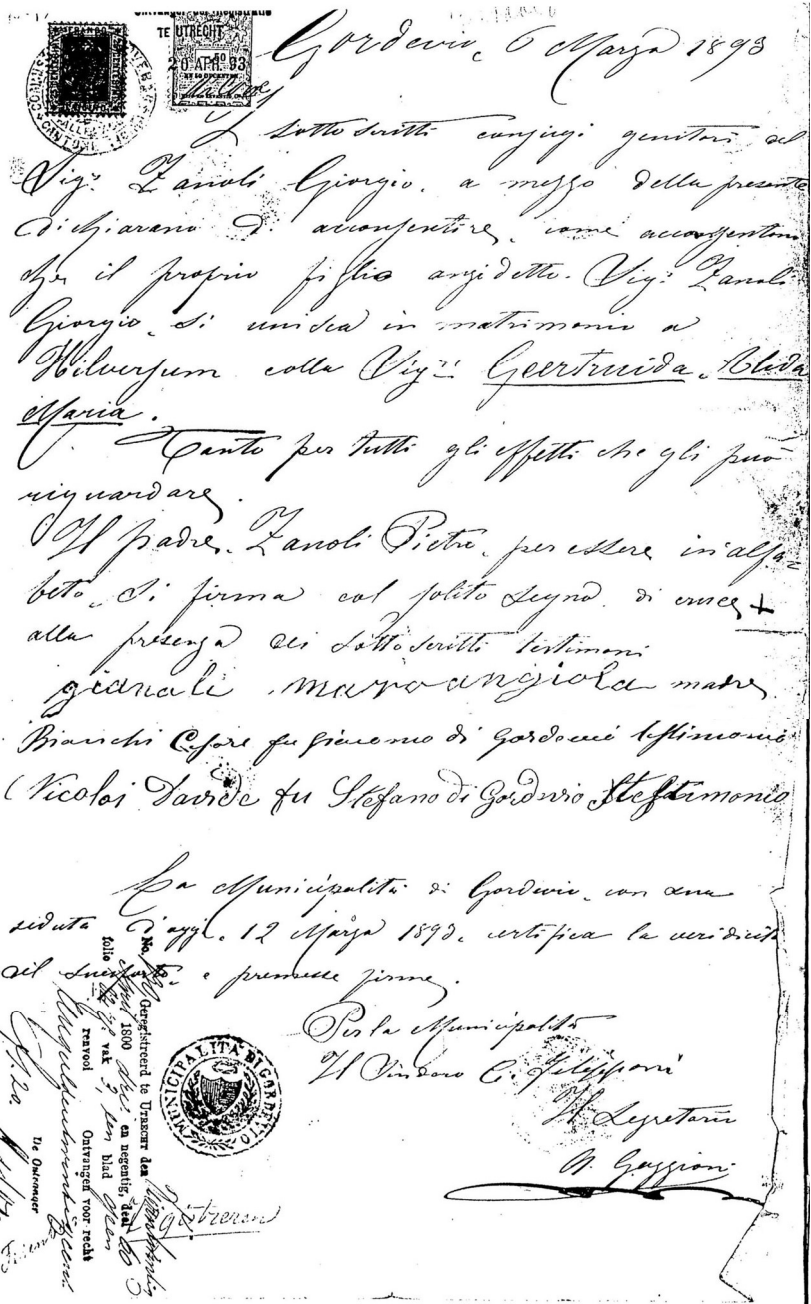 Ontvanger der Registratie
TE UTRECHT
20 APR. 93
Gordevio, 6 Marzo 1893
I sottoscritti conjugi genitori del
Sigr. Zanoli Giorgio, a mezzo della presente
dichiarano di acconsentire, come acconsentono
che il proprio figlio anzidetto Sigr. Zanoli
Giorgio, si unisca in matrimonio a
Hilversum colla Sigra. Geertruida, Alida
Maria.
Tanto per tutti gli effetti che gli può
riguardare.
Il padre, Zanoli Pietro, per essere inalfa-
beto, si firma col solito segno di croce +
alla presenza dei sottoscritti testimoni
madre
Bianchi Cesare fu Giacomo di Gordevio testimonio
Nicolai Davide fu Stefano di Gordevio testimonio
La Municipalità di Gordevio, con sua
seduta d'oggi, 12 Marzo 1893, certifica la veridicità
del e premesse firme.
Per la Municipalità
Il Sindaco C. Filipponi
Il Segretario
Gaggioni
MUNICIPALITÀ DI GORDEVIO
No. Geregistreerd te UTRECHT den
April 1800 drie en negentig, deel
folio vak 3, een blad geen
renvooi Ontvangen voor recht
De Ontvanger